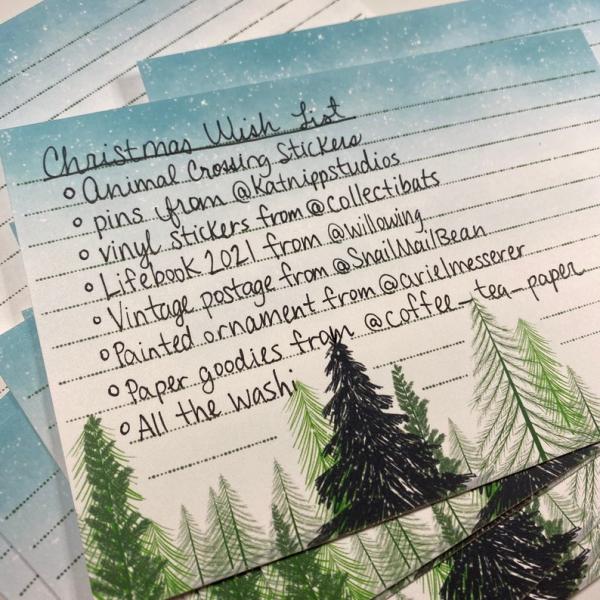 Christmas Wish List
Animal Crossing Stickers
pins from @Katnippstudios
vinyl stickers from @Collectibats
Lifebook 2021 from @willowing
Vintage postage from @SnailMailBean
Painted ornament from @arielmesserer
Paper goodies from @coffee_tea_paper
All the washi